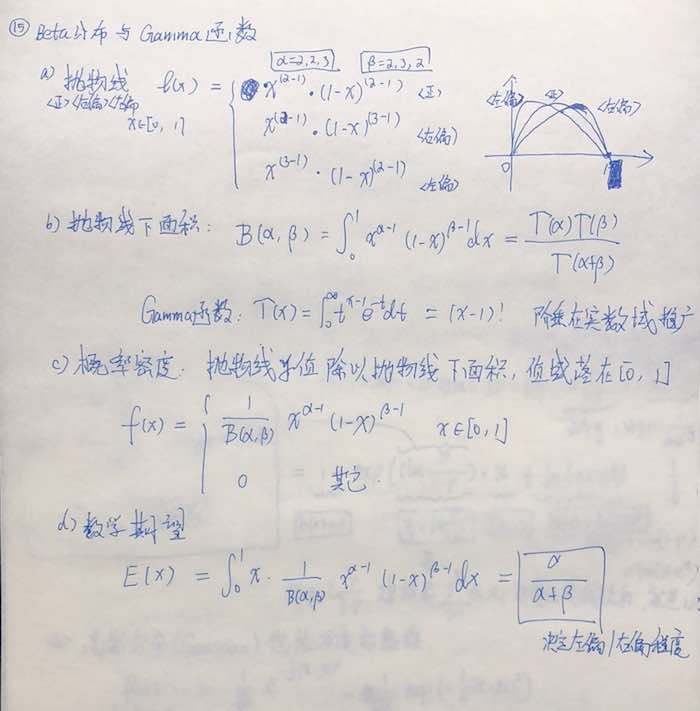 ⑮ Beta分布与Gamma函数
α=2,2,3 β=2,3,2
a) 抛物线 f(x) = { x^(2-1) · (1-x)^(2-1) <正>
<正><左偏><右偏> x^(2-1) · (1-x)^(3-1) <右偏>
x∈[0, 1] x^(3-1) · (1-x)^(2-1) <左偏>
<右偏> <正> <左偏>
0 1
b) 抛物线下面积: B(α, β) = ∫₀¹ x^(α-1) (1-x)^(β-1) dx = Γ(α)Γ(β) / Γ(α+β)
Gamma函数: Γ(x) = ∫₀^∞ t^(x-1) e^(-t) dt = (x-1)! 阶乘在实数域推广
c) 概率密度: 抛物线等值除以抛物线下面积, 值域落在[0, 1]
f(x) = { 1/B(α,β) x^(α-1) (1-x)^(β-1) x∈[0, 1]
0 其它.
d) 数学期望
E(x) = ∫₀¹ x · 1/B(α,β) x^(α-1) (1-x)^(β-1) dx = α/(α+β)
决定左偏/右偏程度